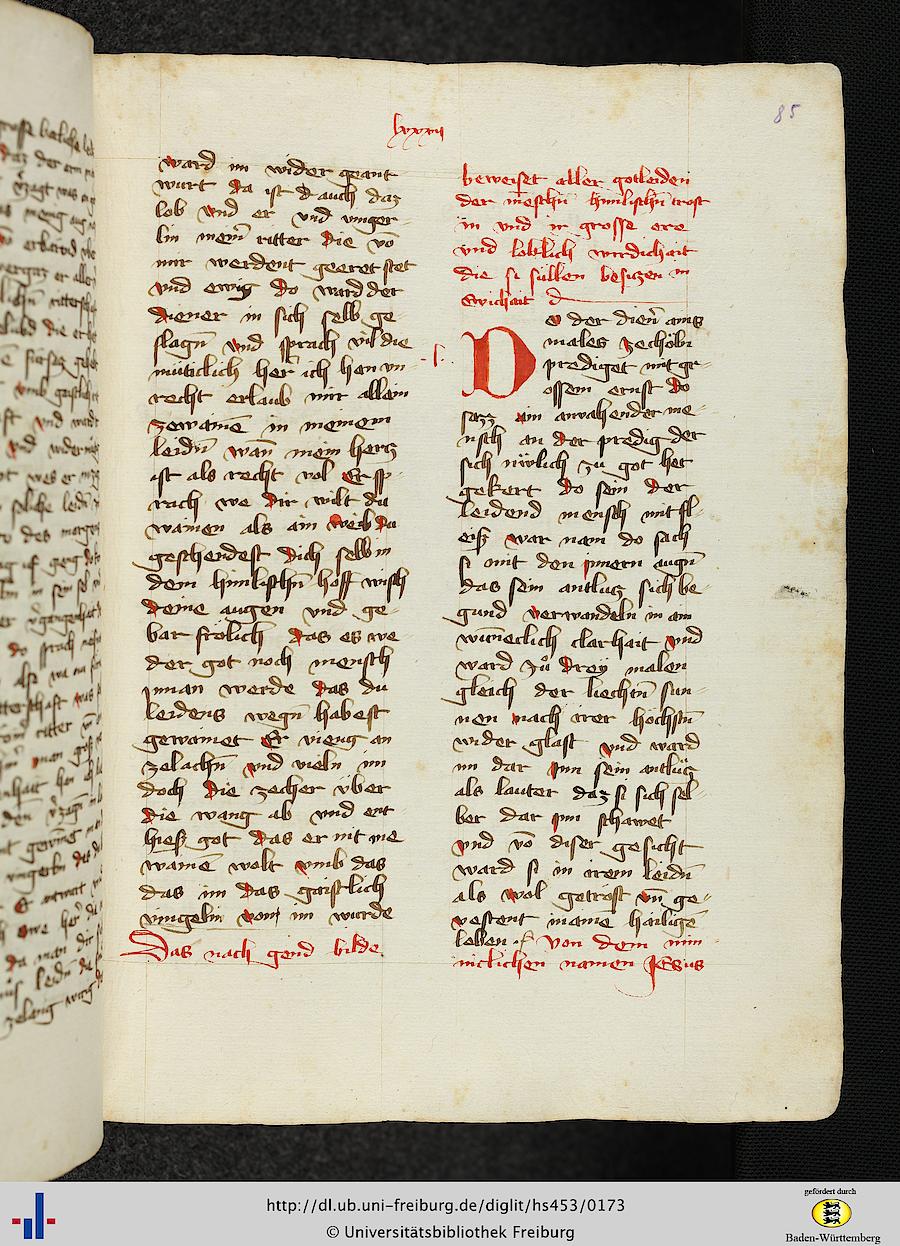 85
lxxxii
ward im wider geant
wurt da ist d auch daz
lob vnd er vnd vinger-
lin meinr ritter die vō
mir werdent geeret stet
vnd ewig do ward der
diener in sich selb ge
slagn̄ vnd sprach vil die
müticlich her ich han vn-
recht erlaub mir allain
zewainē in meinem
leidn̄ wan̄ mein hertz
ist als recht vol Er sp-
rach we dir wilt du
wainen als ain weib du
geschendest dich selb in
dem himlischn̄ hoff wisch
deine augen vnd ge-
bar frölich das es we-
der got noch mensch
innan werde das du
leidens wegn̄ habest
gewainet Er vieng an
zelachn̄ vnd vieln im
doch die zecher vber
die wang ab vnd ent
hieß got das er nit me
wainē wolt vmb das
das im das gaistlich
vingelin vonn im wurde
Das nach gend bilde
beweiset aller gotleiden
der mēschn̄ himlischn̄ trost
in vnd ir grosse ere
vnd loblich wirdichait
die si süllen besiczen in
ewichait
Do der dienr̄ ains
males ze chöln
prediget mit gr-
ossem ernst do
sazz ain anvahender me-
nsch an der predig der
sich nüwlich zu got het
gekert do sein der
leidend mensch mit fl-
eiß war nam do sach
si mit den innern augn̄
das sein antlucz sich be-
gund verwandeln in ain
wuneclich clarhait vnd
ward zů drey malen
gleich der liechtn̄ sun-
nen nach irer höchstn̄
wider glast vnd ward
im dar inn sein antlücz
als lauter daz si sich sel-
ber dar inn schawet
vnd vō diser gesicht
ward si in irem leidn̄
als wol getröst vn̄ ge-
vestent in ainē hailigē
leben von dem min-
niclichen namen Jesus
http://dl.ub.uni-freiburg.de/diglit/hs453/0173
© Universitätsbibliothek Freiburg
gefördert durch
Baden-Württemberg